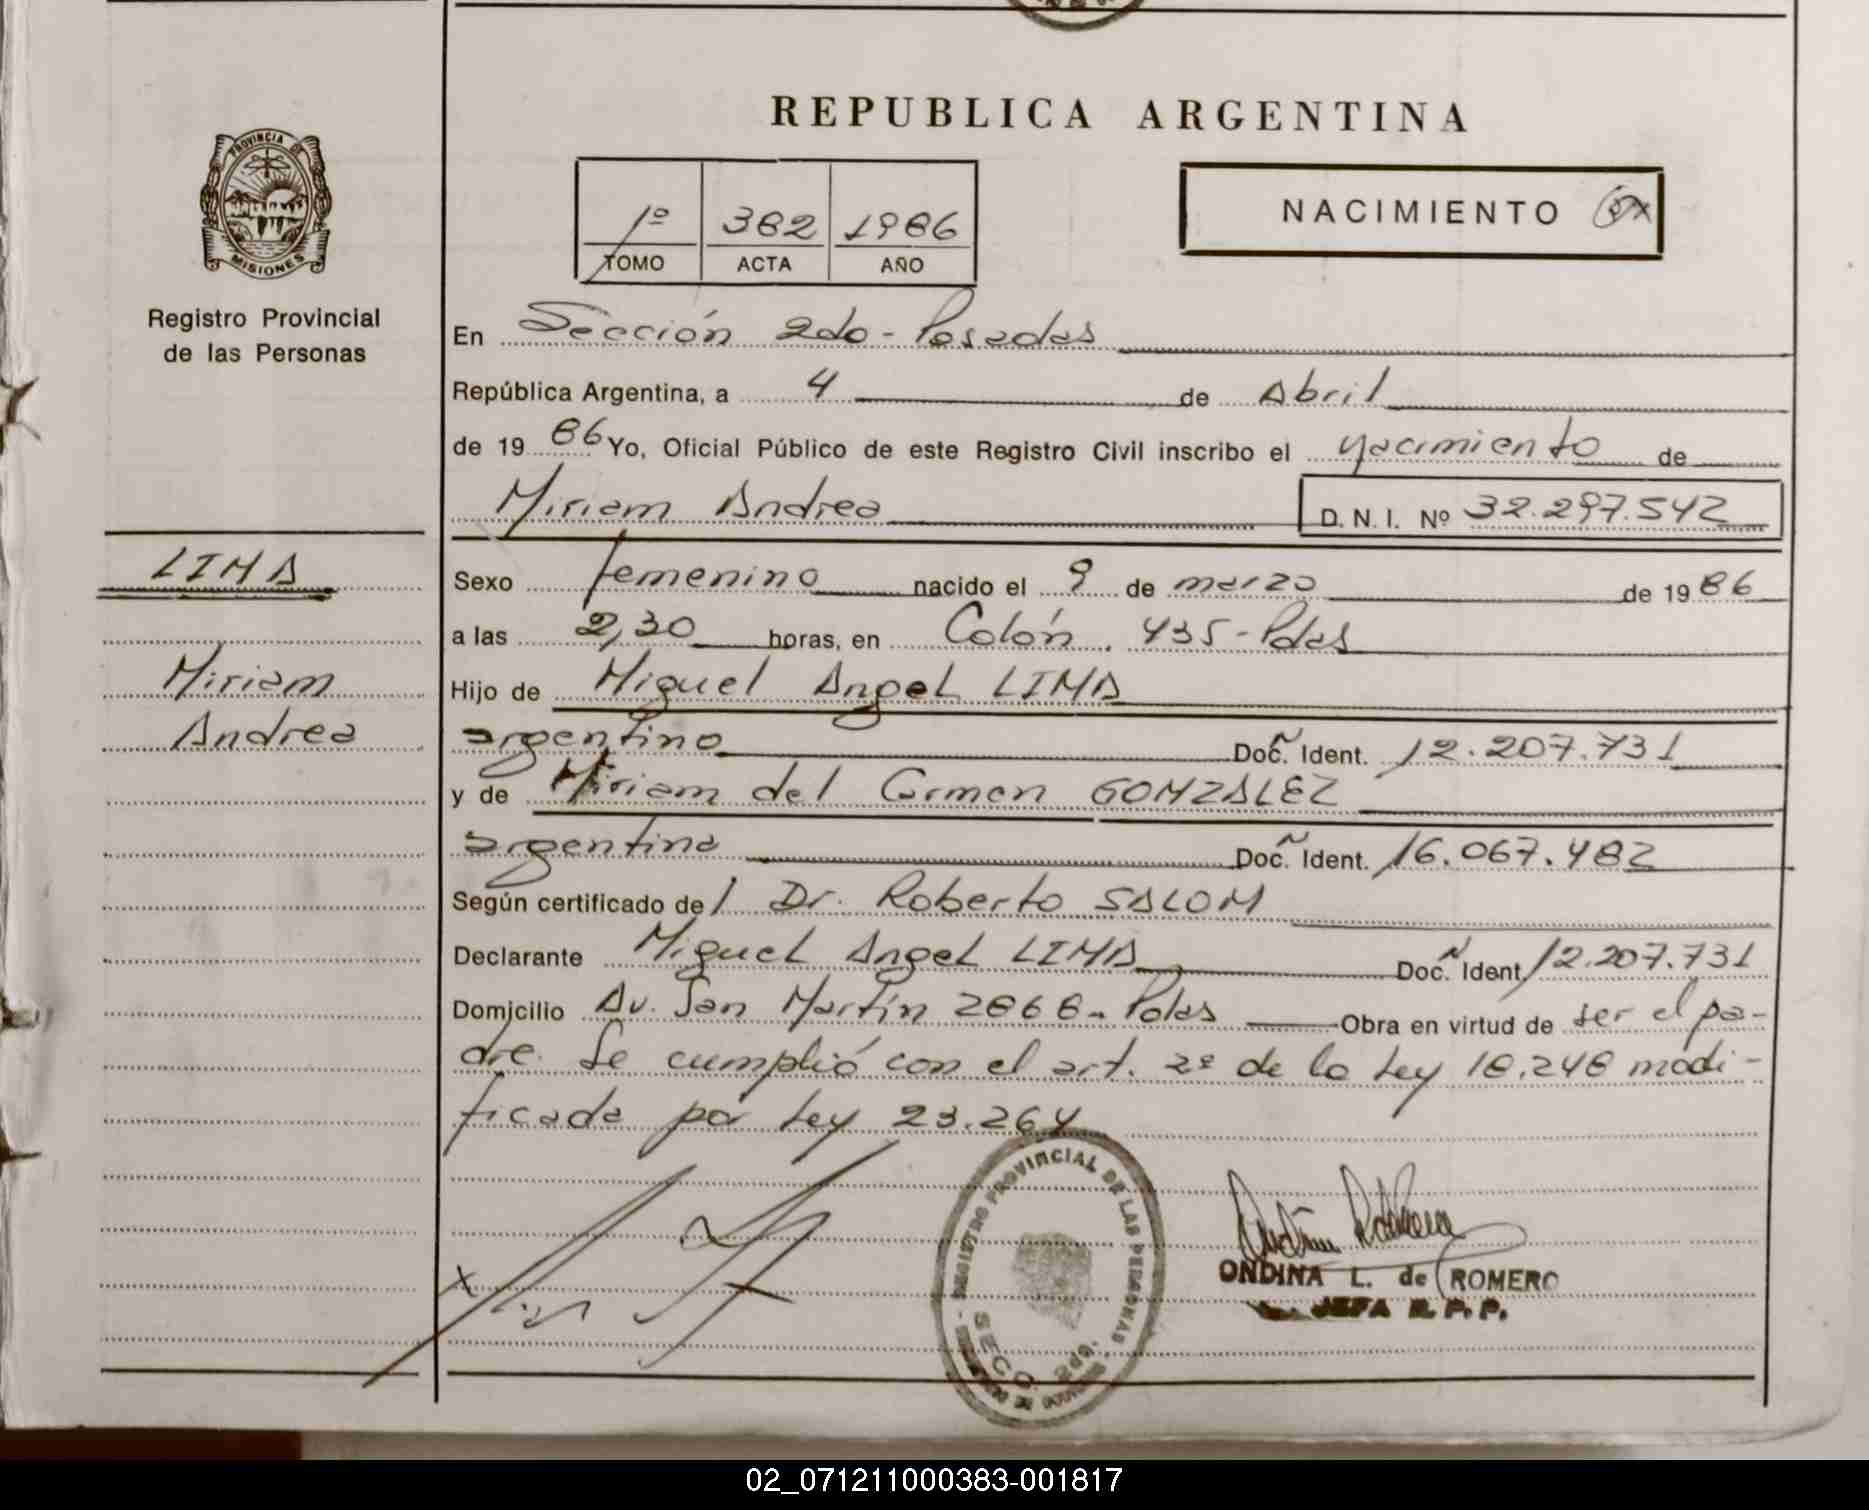 REPUBLICA ARGENTINA
PROVINCIA DE
MISIONES
Registro Provincial
de las Personas
1º 382 1986
TOMO ACTA AÑO
NACIMIENTO
En Sección 2do - Posadas
República Argentina, a 4 de Abril
de 1986 Yo, Oficial Público de este Registro Civil inscribo el Nacimiento de
Miriam Andrea D. N. I. Nº 32.297.542
LIMA
Sexo femenino nacido el 9 de marzo de 1986
a las 2,30 horas, en Colón 435 - Pdas
Miriam
Andrea
Hijo de Miguel Angel LIMA
argentino Doc. Ident. 12.207.731
y de Miriam del Carmen GONZALEZ
argentina Doc. Ident. 16.067.482
Según certificado del Dr. Roberto SALOM
Declarante Miguel Angel LIMA Doc. Ident. 12.207.731
Domicilio Av. San Martín 2868 - Pdas Obra en virtud de ser el pa-
dre. Se cumplió con el art. 2º de la Ley 18.248 modi-
ficada por Ley 23.264
REGISTRO PROVINCIAL DE LAS PERSONAS
SECC. 2da.
ONDINA L. de ROMERO
JEFA R. P. P.
02_071211000383-001817